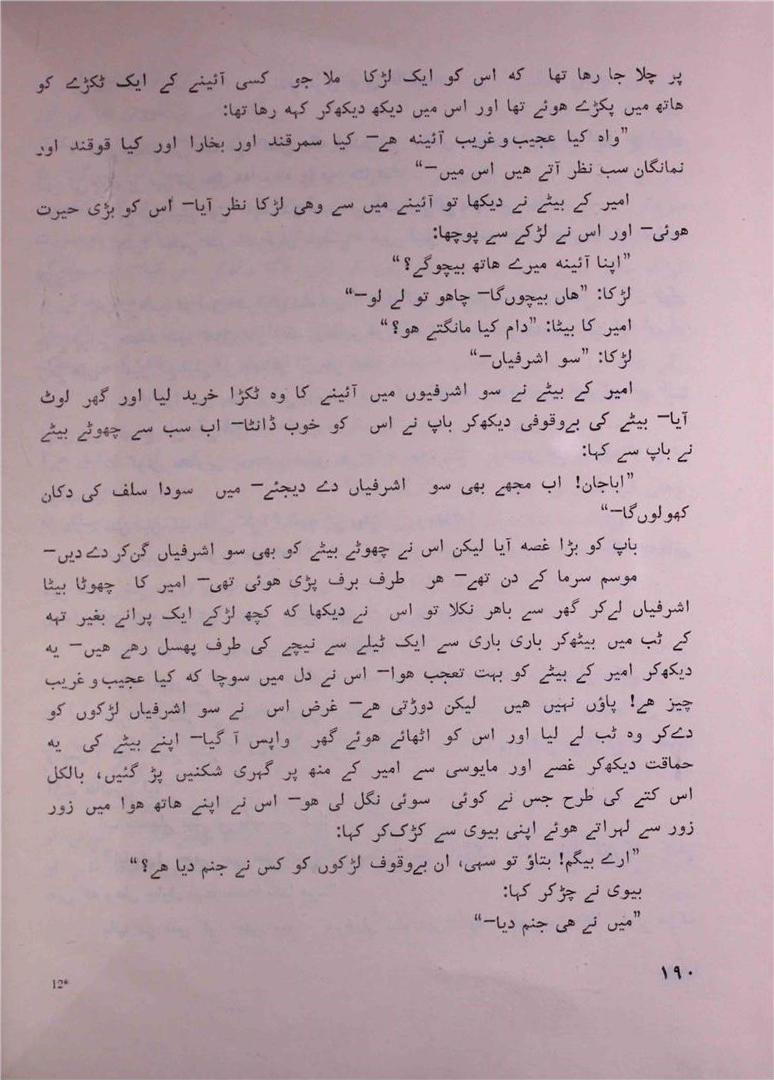 پر چلا جا رھا تھا کہ اس کو ایک لڑکا ملا جو کسی آئینے کے ایک ٹکڑے کو
ھاتھ میں پکڑے ھوئے تھا اور اس میں دیکھ دیکھکر کہہ رھا تھا:
”واہ کیا عجیب و غریب آئینہ ھے — کیا سمرقند اور بخارا اور کیا قوقند اور
نمانگان سب نظر آتے ھیں اس میں —“
امیر کے بیٹے نے دیکھا تو آئینے میں سے وھی لڑکا نظر آیا — اس کو بڑی حیرت
ھوئی — اور اس نے لڑکے سے پوچھا:
”اپنا آئینہ میرے ھاتھ بیچوگے؟“
لڑکا: ”ھاں بیچوں‌گا — چاھو تو لے لو —“
امیر کا بیٹا: ”دام کیا مانگتے ھو؟“
لڑکا: ”سو اشرفیاں —“
امیر کے بیٹے نے سو اشرفیوں میں آئینے کا وہ ٹکڑا خرید لیا اور گھر لوٹ
آیا — بیٹے کی بے‌وقوفی دیکھکر باپ نے اس کو خوب ڈانٹا — اب سب سے چھوٹے بیٹے
نے باپ سے کہا:
”اباجان! اب مجھے بھی سو اشرفیاں دے دیجئے — میں سودا سلف کی دکان
کھولوں‌گا —“
باپ کو بڑا غصہ آیا لیکن اس نے چھوٹے بیٹے کو بھی سو اشرفیاں گن‌کر دے‌دیں —
موسم سرما کے دن تھے — ھر طرف برف پڑی ھوئی تھی — امیر کا چھوٹا بیٹا
اشرفیاں لے‌کر گھر سے باھر نکلا تو اس نے دیکھا کہ کچھ لڑکے ایک پرانے بغیر تہہ
کے ٹب میں بیٹھ‌کر باری باری سے ایک ٹیلے سے نیچے کی طرف پھسل رھے ھیں — یہ
دیکھکر امیر کے بیٹے کو بہت تعجب ھوا — اس نے دل میں سوچا کہ کیا عجیب و غریب
چیز ھے! پاؤں نہیں ھیں لیکن دوڑتی ھے — غرض اس نے سو اشرفیاں لڑکوں کو
دے‌کر وہ ٹب لے لیا اور اس کو اٹھائے ھوئے گھر واپس آ گیا — اپنے بیٹے کی یہ
حماقت دیکھکر غصے اور مایوسی سے امیر کے منھ پر گہری شکنیں پڑ گئیں، بالکل
اس کتے کی طرح جس نے کوئی سوئی نگل لی ھو — اس نے اپنے ھاتھ ھوا میں زور
زور سے لہراتے ھوئے اپنی بیوی سے کڑک‌کر کہا:
”ارے بیگم! بتاؤ تو سہی، ان بے‌وقوف لڑکوں کو کس نے جنم دیا ھے؟“
بیوی نے چڑکر کہا:
”میں نے ھی جنم دیا —“
۱۹۰
12*